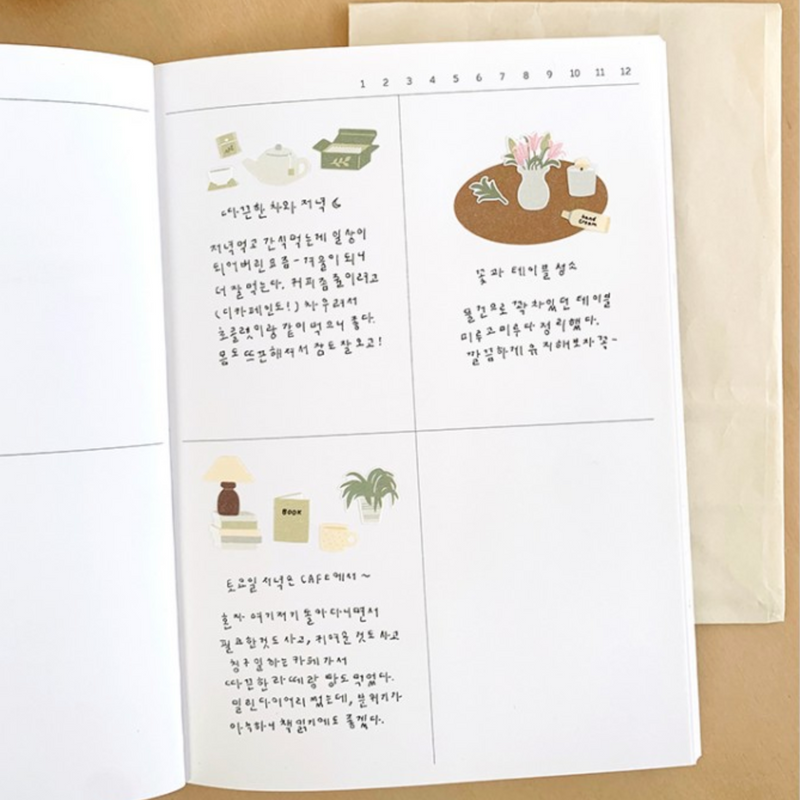 1 2 3 4 5 6 7 8 9 10 11 12
따끈한 차와 저녁
저녁먹고 간식먹는게 일상이
되어버린요즘~ 겨울이 되니
더 잘 먹는다. 커피좀 줄이려고
(디카페인도!) 차우려서
초콜렛이랑 같이 먹으니 좋다.
몸도 뜨끈해져서 잠도 잘오고!
hand
cream
꽃과 테이블 청소
물건으로 꽉 차있던 테이블
미루고 미루다 정리했다.
깔끔하게 유지해보자꼭~
BOOK
토요일 저녁은 CAFE에서~
혼자 여기저기 돌아다니면서
필요한것도 사고, 귀여운 것도 사고
친구 일하는 카페가서
따끈한 라떼랑 빵도 먹었다.
밀린다이어리 썼는데, 분위기가
아늑하니 책 읽기에도 좋겠다.